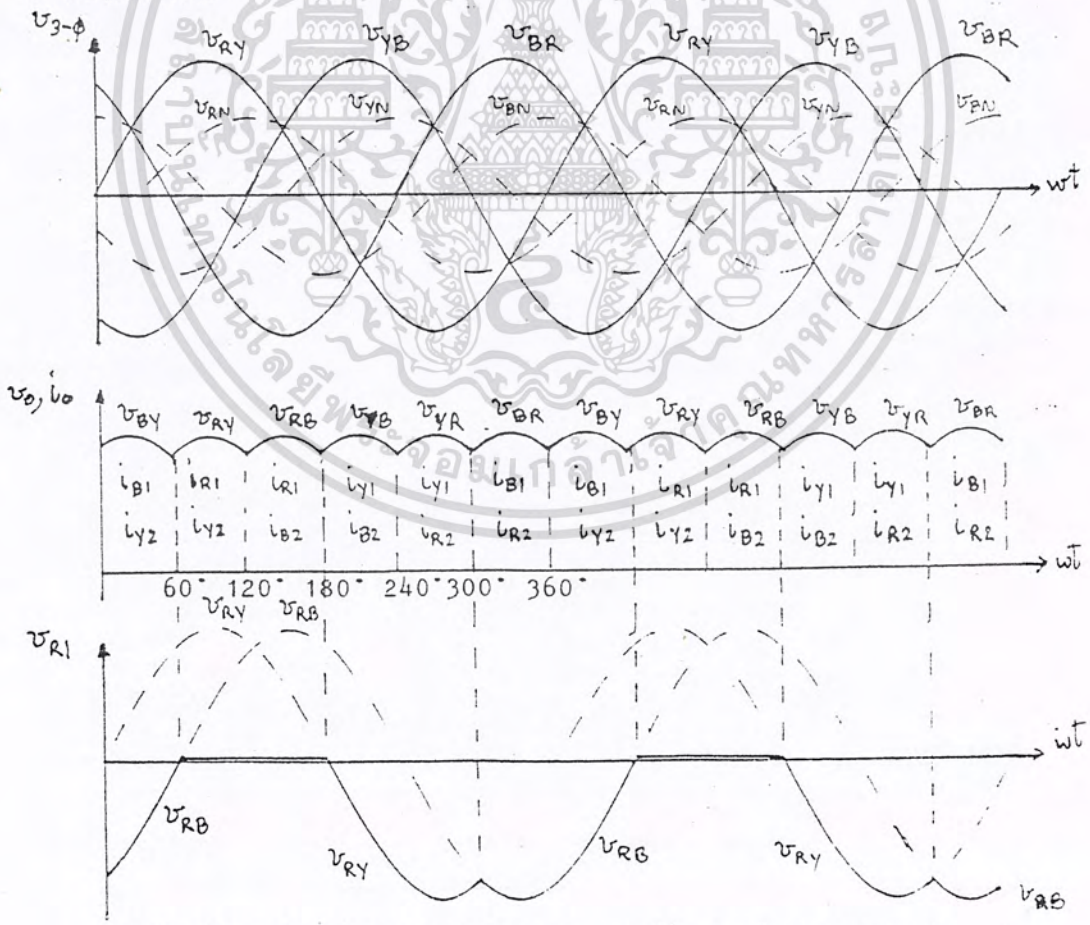 v3-φ
vRY vYB vBR vRY vYB vBR
vRN vYN vBN vRN vYN vBN
wt
vo, io
vBY vRY vRB vYB vYR vBR vBY vRY vRB vYB vYR vBR
iB1 iR1 iR1 iY1 iY1 iB1 iB1 iR1 iR1 iY1 iY1 iB1
iY2 iY2 iB2 iB2 iR2 iR2 iY2 iY2 iB2 iB2 iR2 iR2
wt
60° 120° 180° 240° 300° 360°
vRY vRB
vR1
wt
vRB vRY vRB vRY vRB